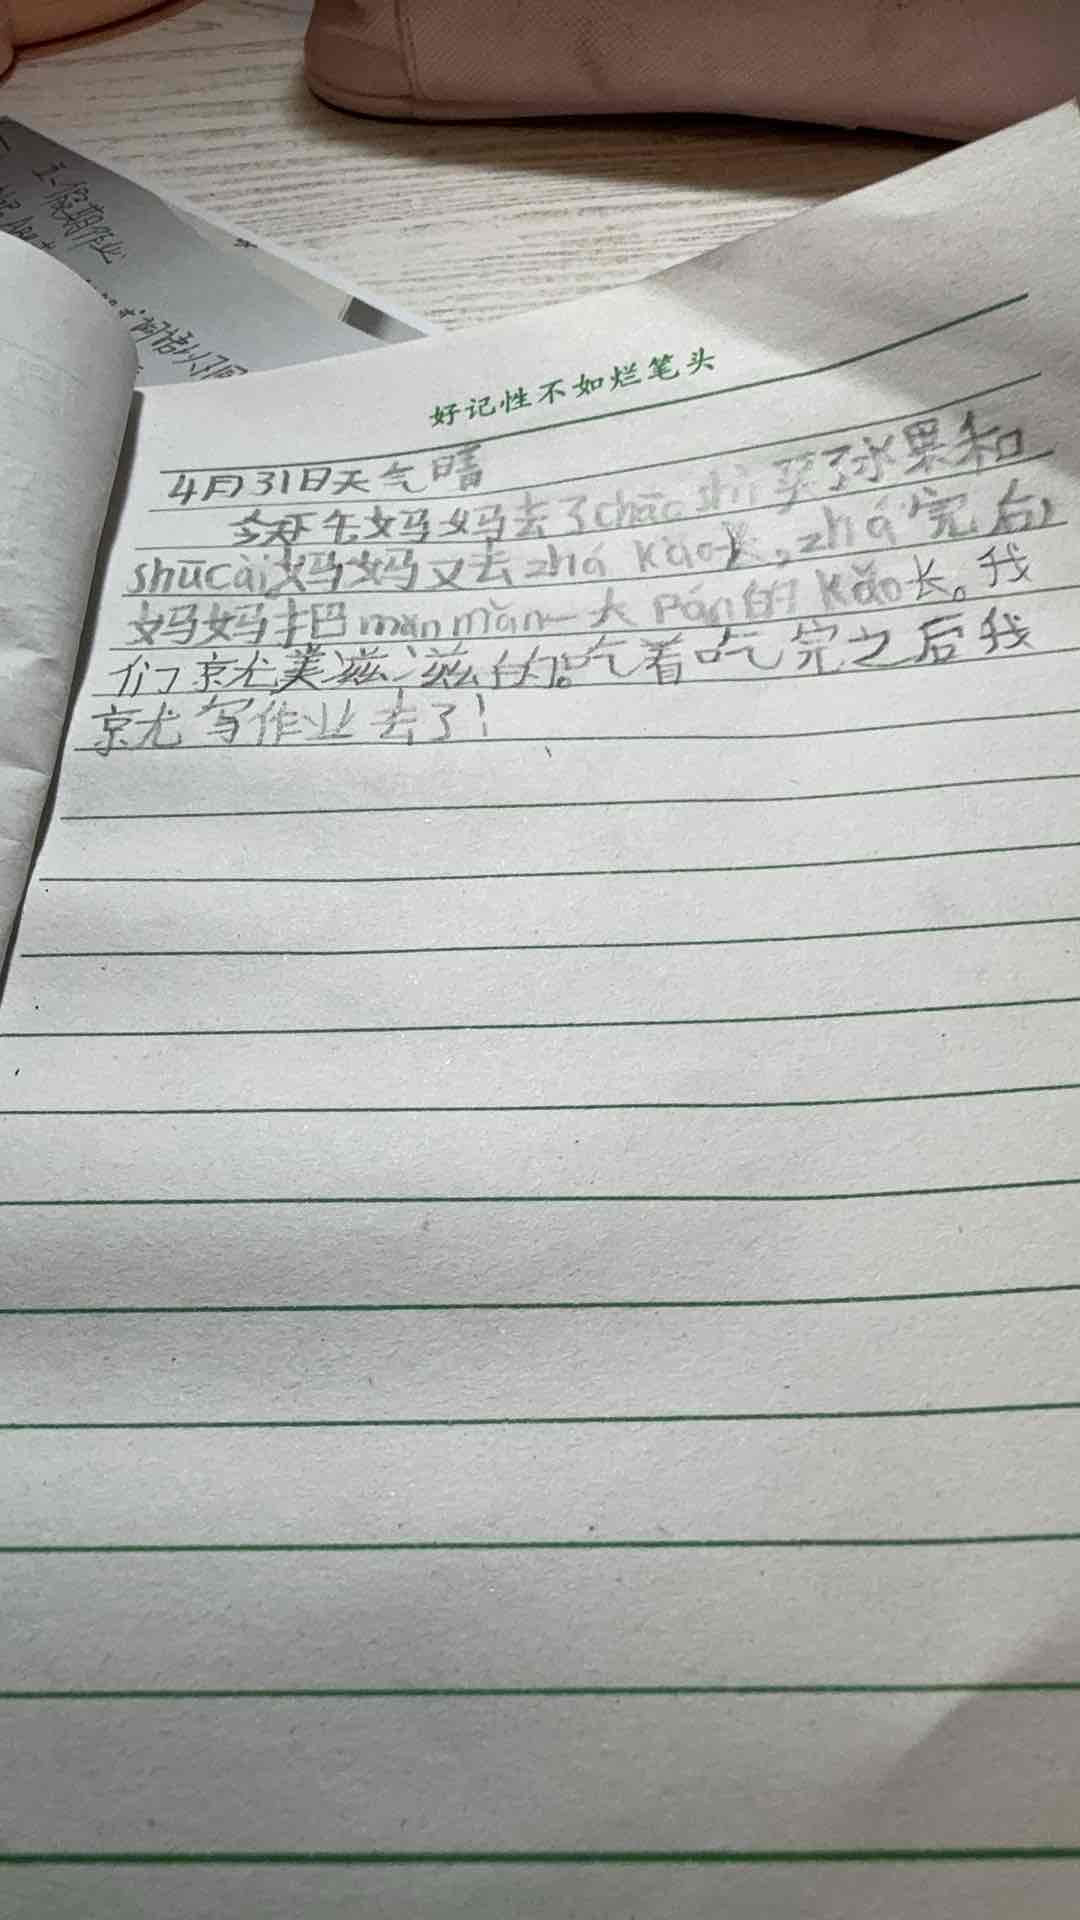 工、假期作业
好记性不如烂笔头
4月31日天气晴
今天下午妈妈去了chāo shì 买了水果和
shūcài,妈妈又去zhá kǎo长,zhá完后,
妈妈把mǎn mǎn一大pán的kǎo长。我
们京尤美滋滋的。吃着吃完之后我
京尤写作业去了!